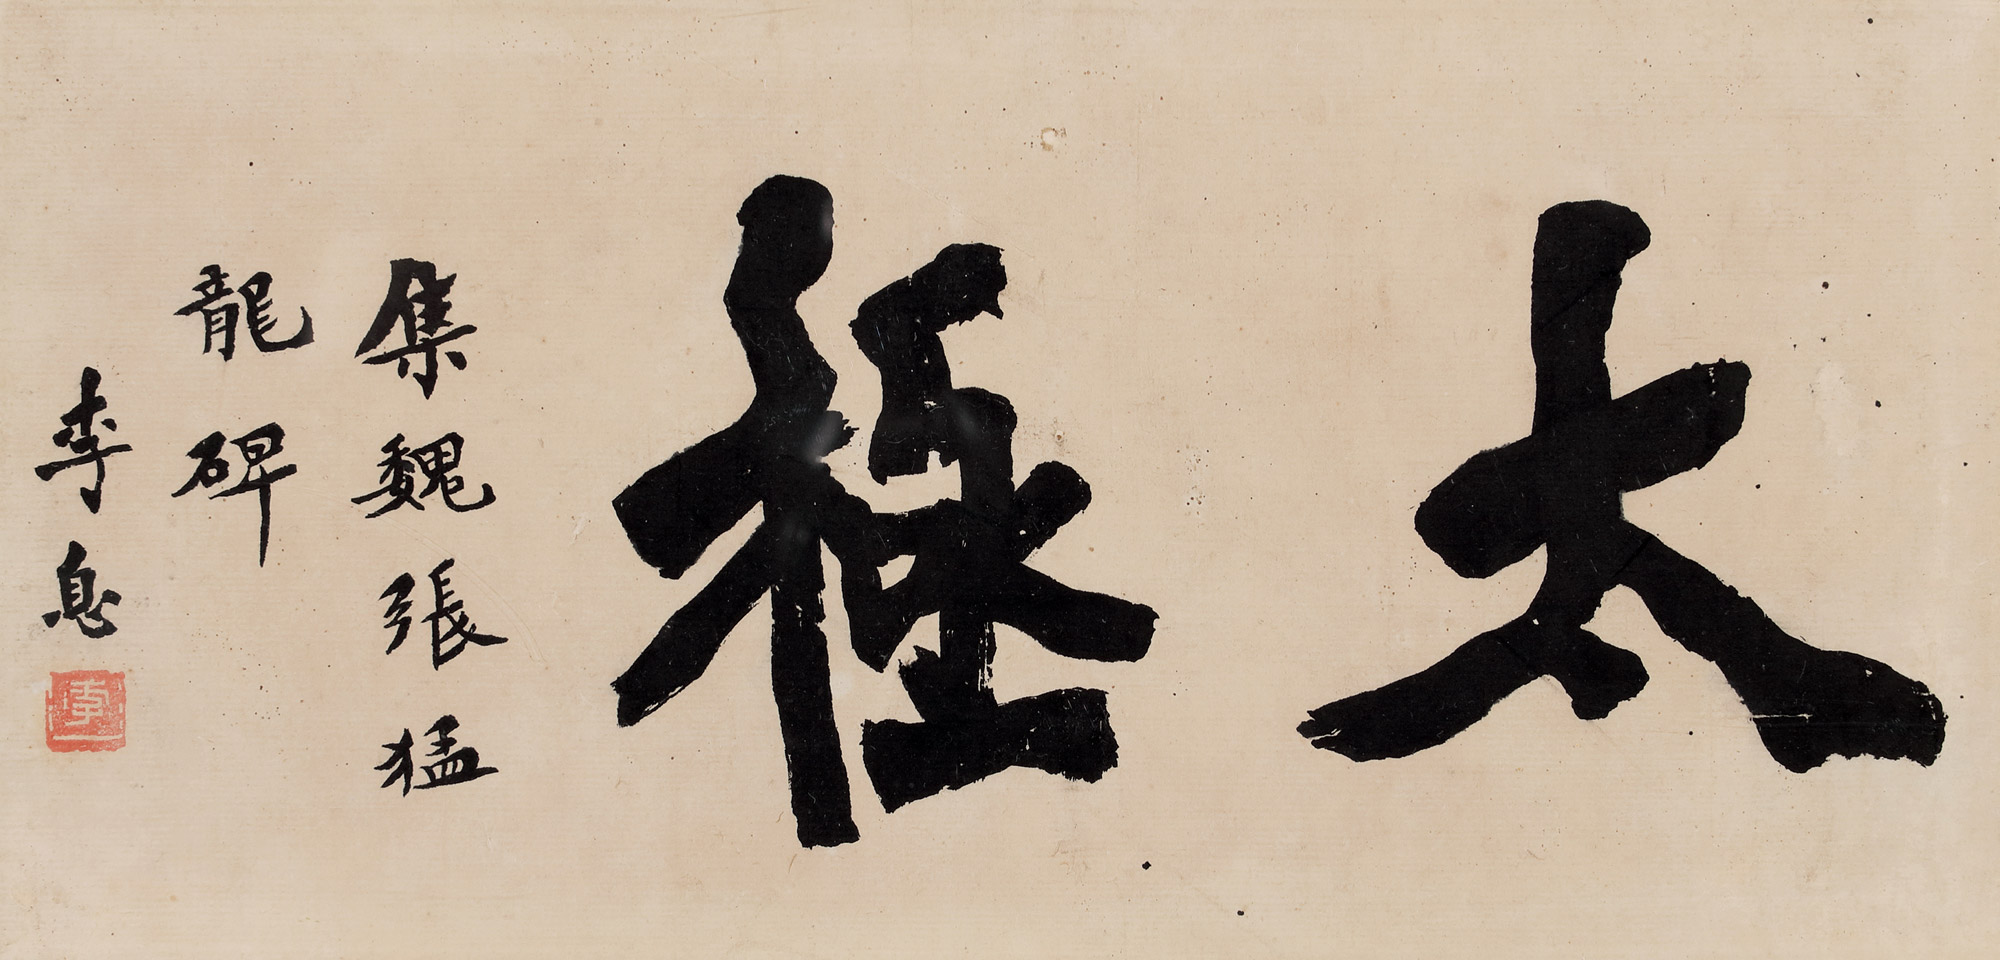 太極
集魏張猛
龍碑
李息
李